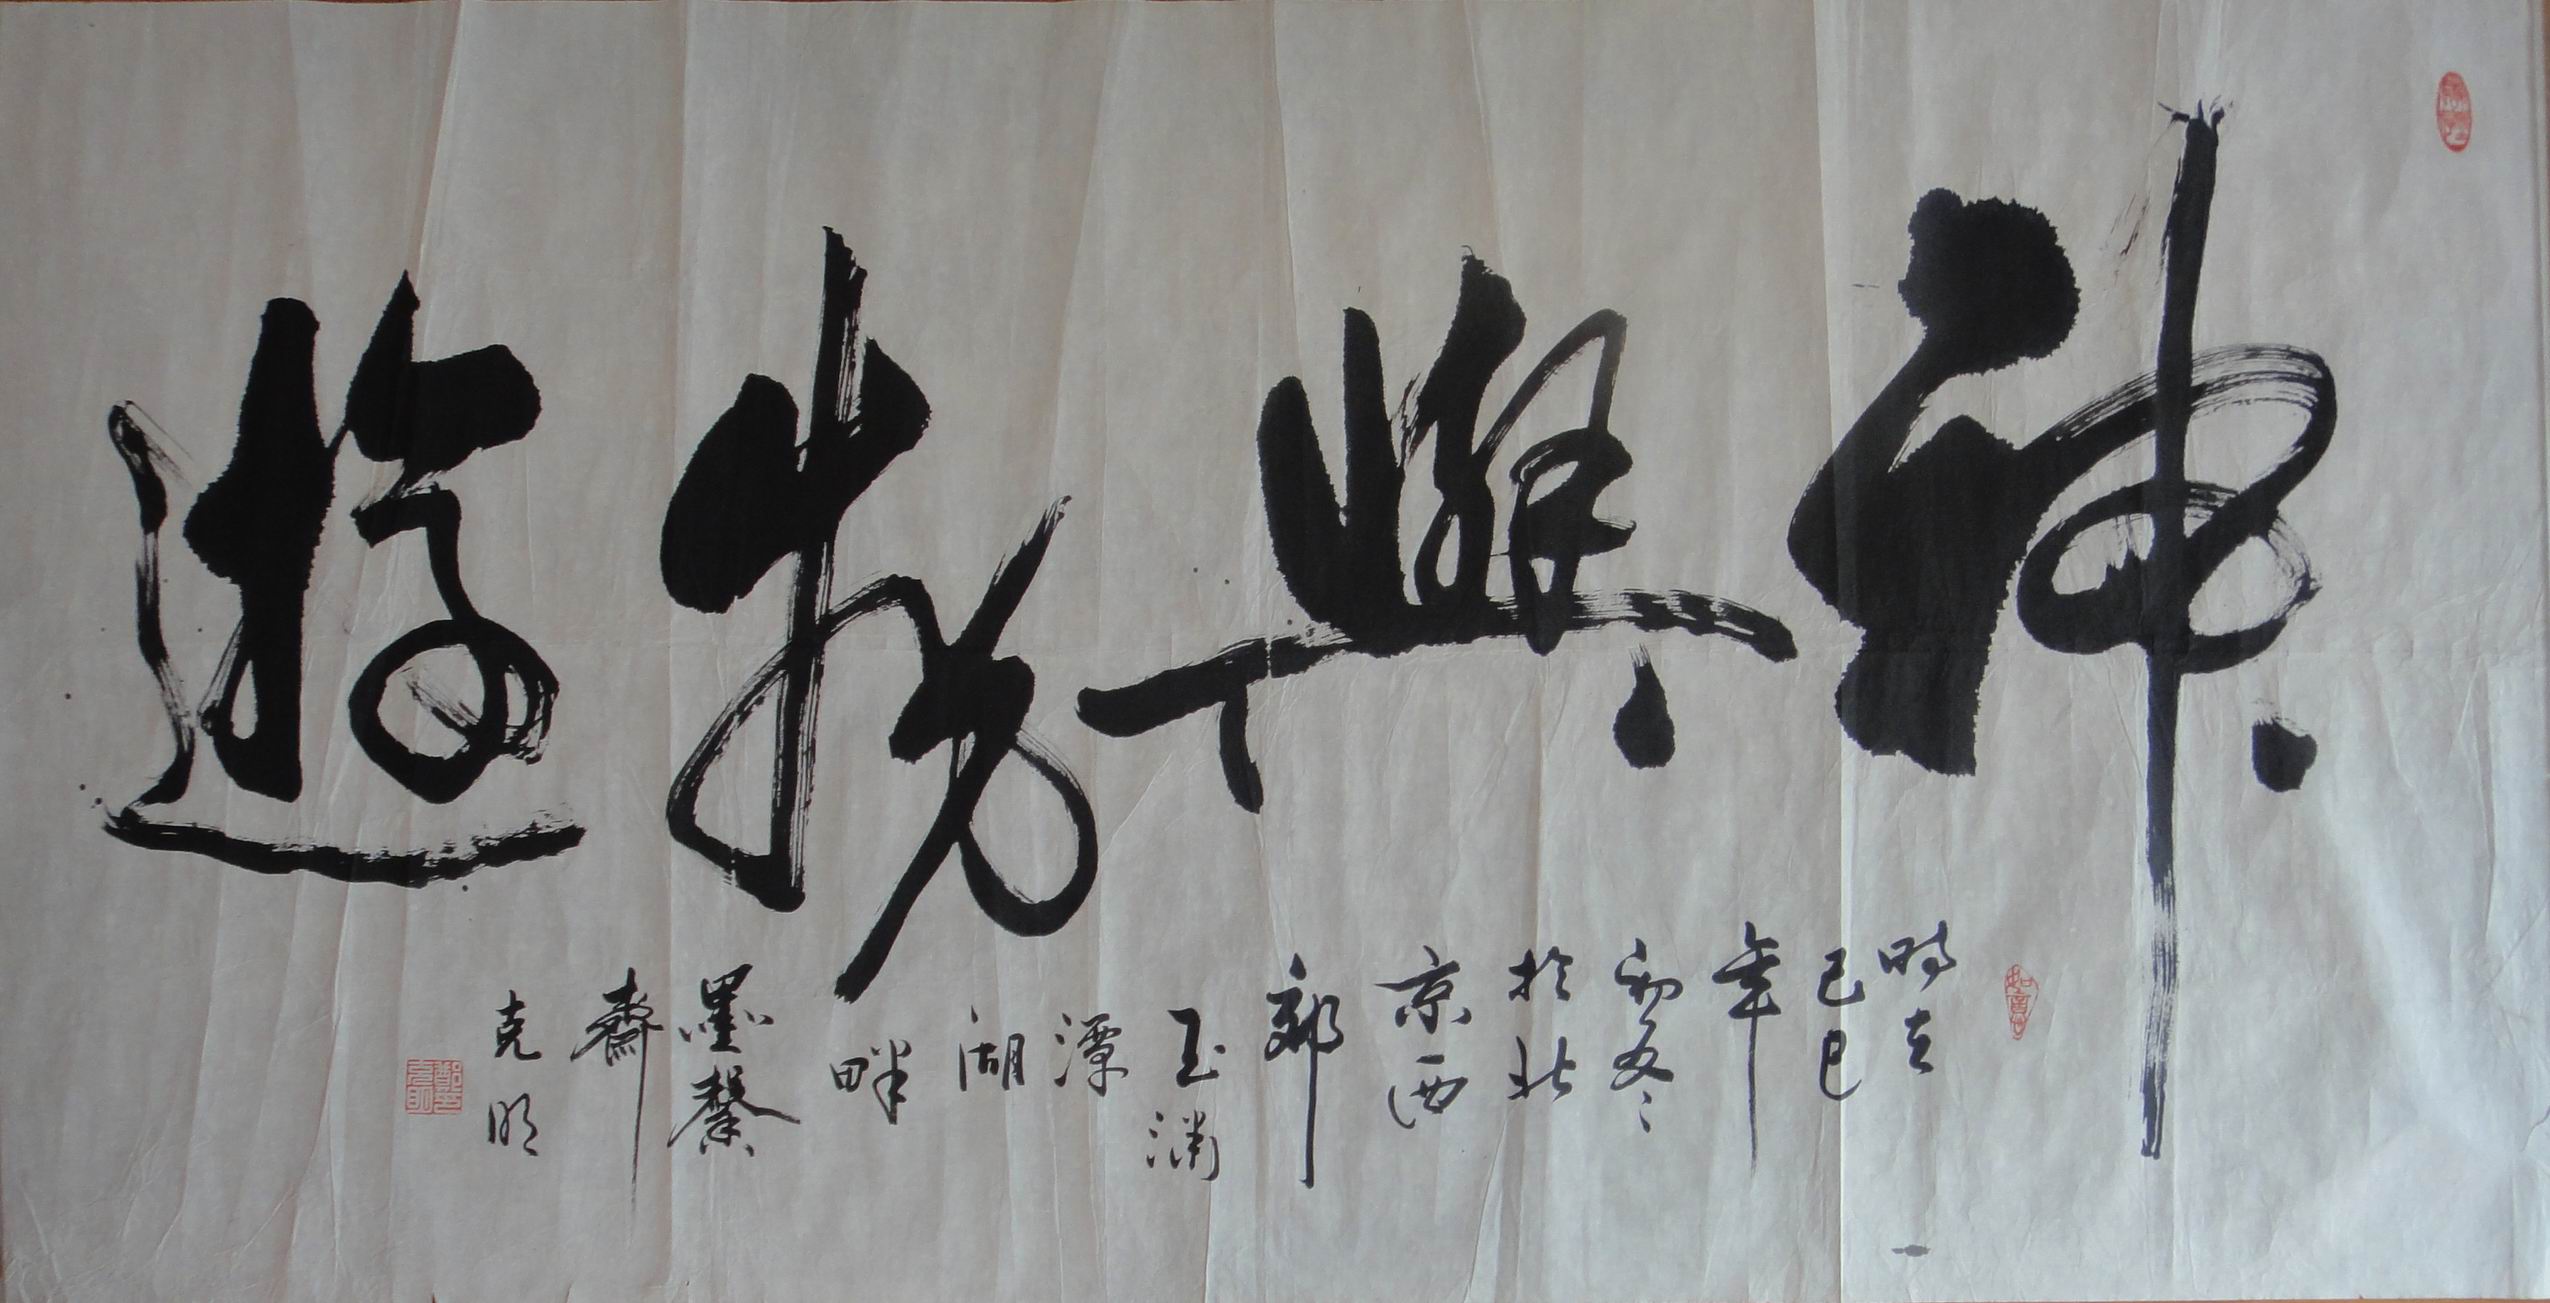 神與物遊
時在
己巳
年
初冬
於北
京西
郊
玉渊
潭
湖
畔
墨馨
齋
克明
如意